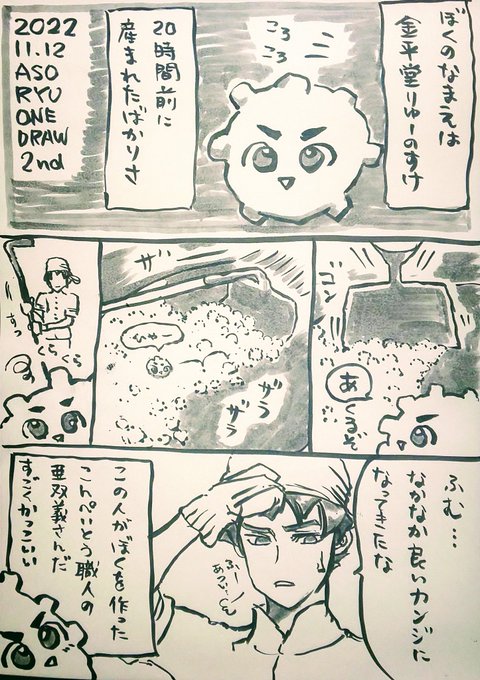 ぼくのなまえは
金平堂りゅーのすけ
ころ
ころ
20時間前に
産まれたばかりさ
2022
11.12
ASO
RYU
ONE
DRAW
2nd
ゴン
あ
くるぞ
ザ
ひゃー
ザラ
ザラ
くらくら
ふむ…
なかなか良いカンジに
なってきたな
ふーっ
あつい…
この人がぼくを作った
こんぺいとう職人の
亜双義さんだ
すごくかっこいい